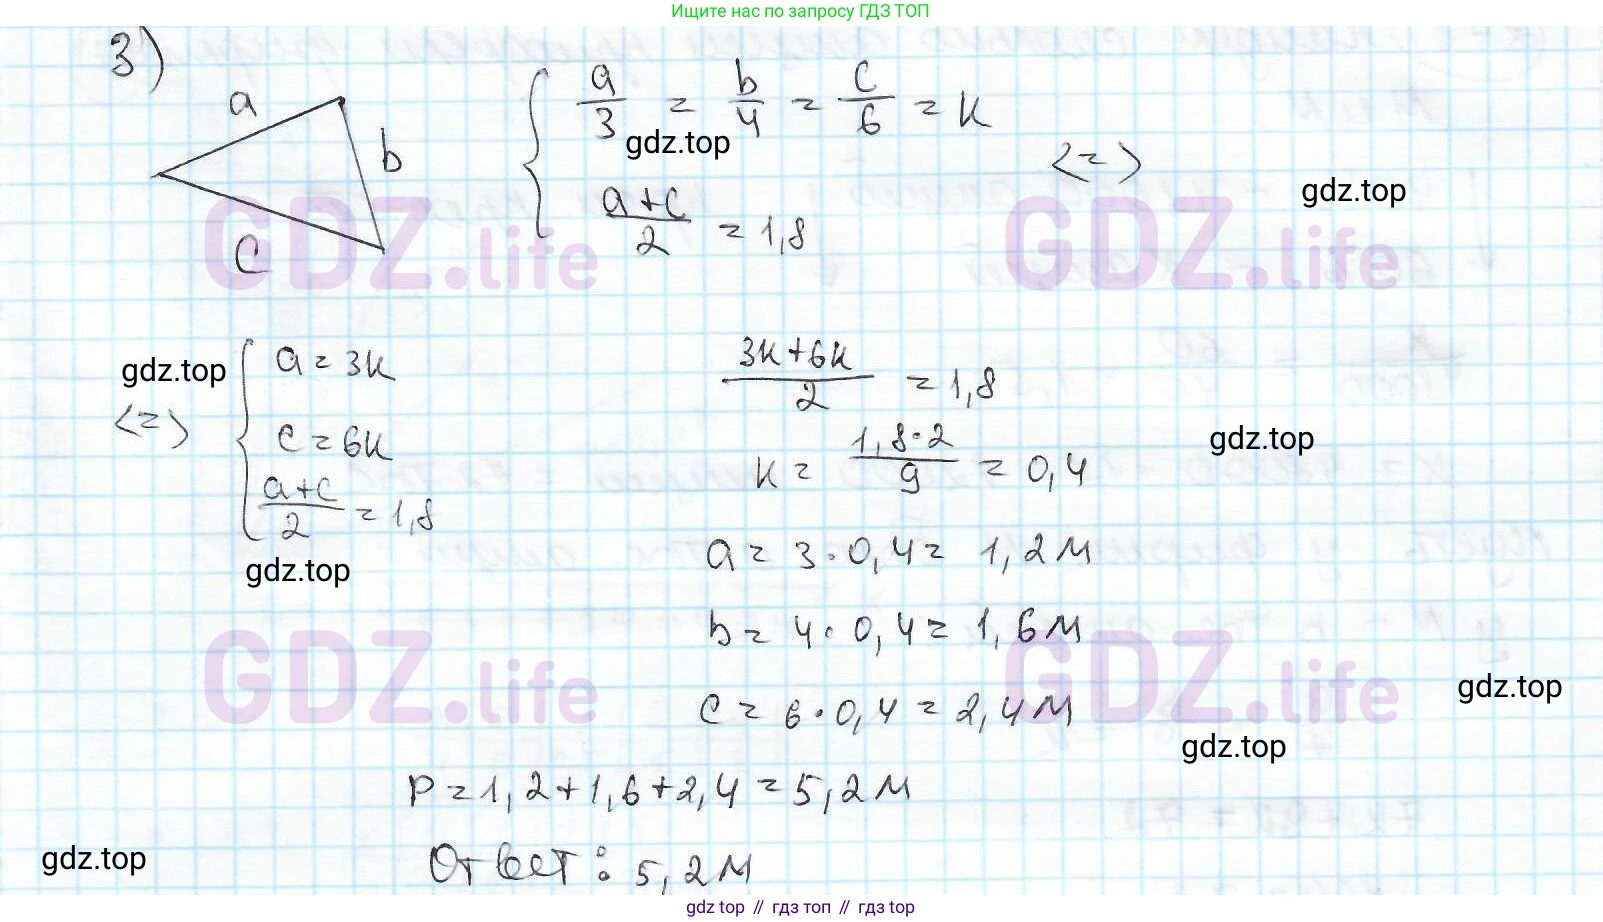 Ищите нас по запросу ГДЗ ТОП
3)
a
b
c
a/3 = b/4 = c/6 = k
gdz.top
<=>
(a+c)/2 = 1,8
gdz.top
GDZ.life
GDZ.life
gdz.top
<=>
a = 3k
c = 6k
(a+c)/2 = 1,8
gdz.top
(3k+6k)/2 = 1,8
k = (1,8·2)/9 = 0,4
gdz.top
a = 3·0,4 = 1,2 м
b = 4·0,4 = 1,6 м
c = 6·0,4 = 2,4 м
GDZ.life
GDZ.life
gdz.top
gdz.top
P = 1,2+1,6+2,4 = 5,2 м
gdz.top
Ответ: 5,2 м
gdz top // гдз топ // gdz top